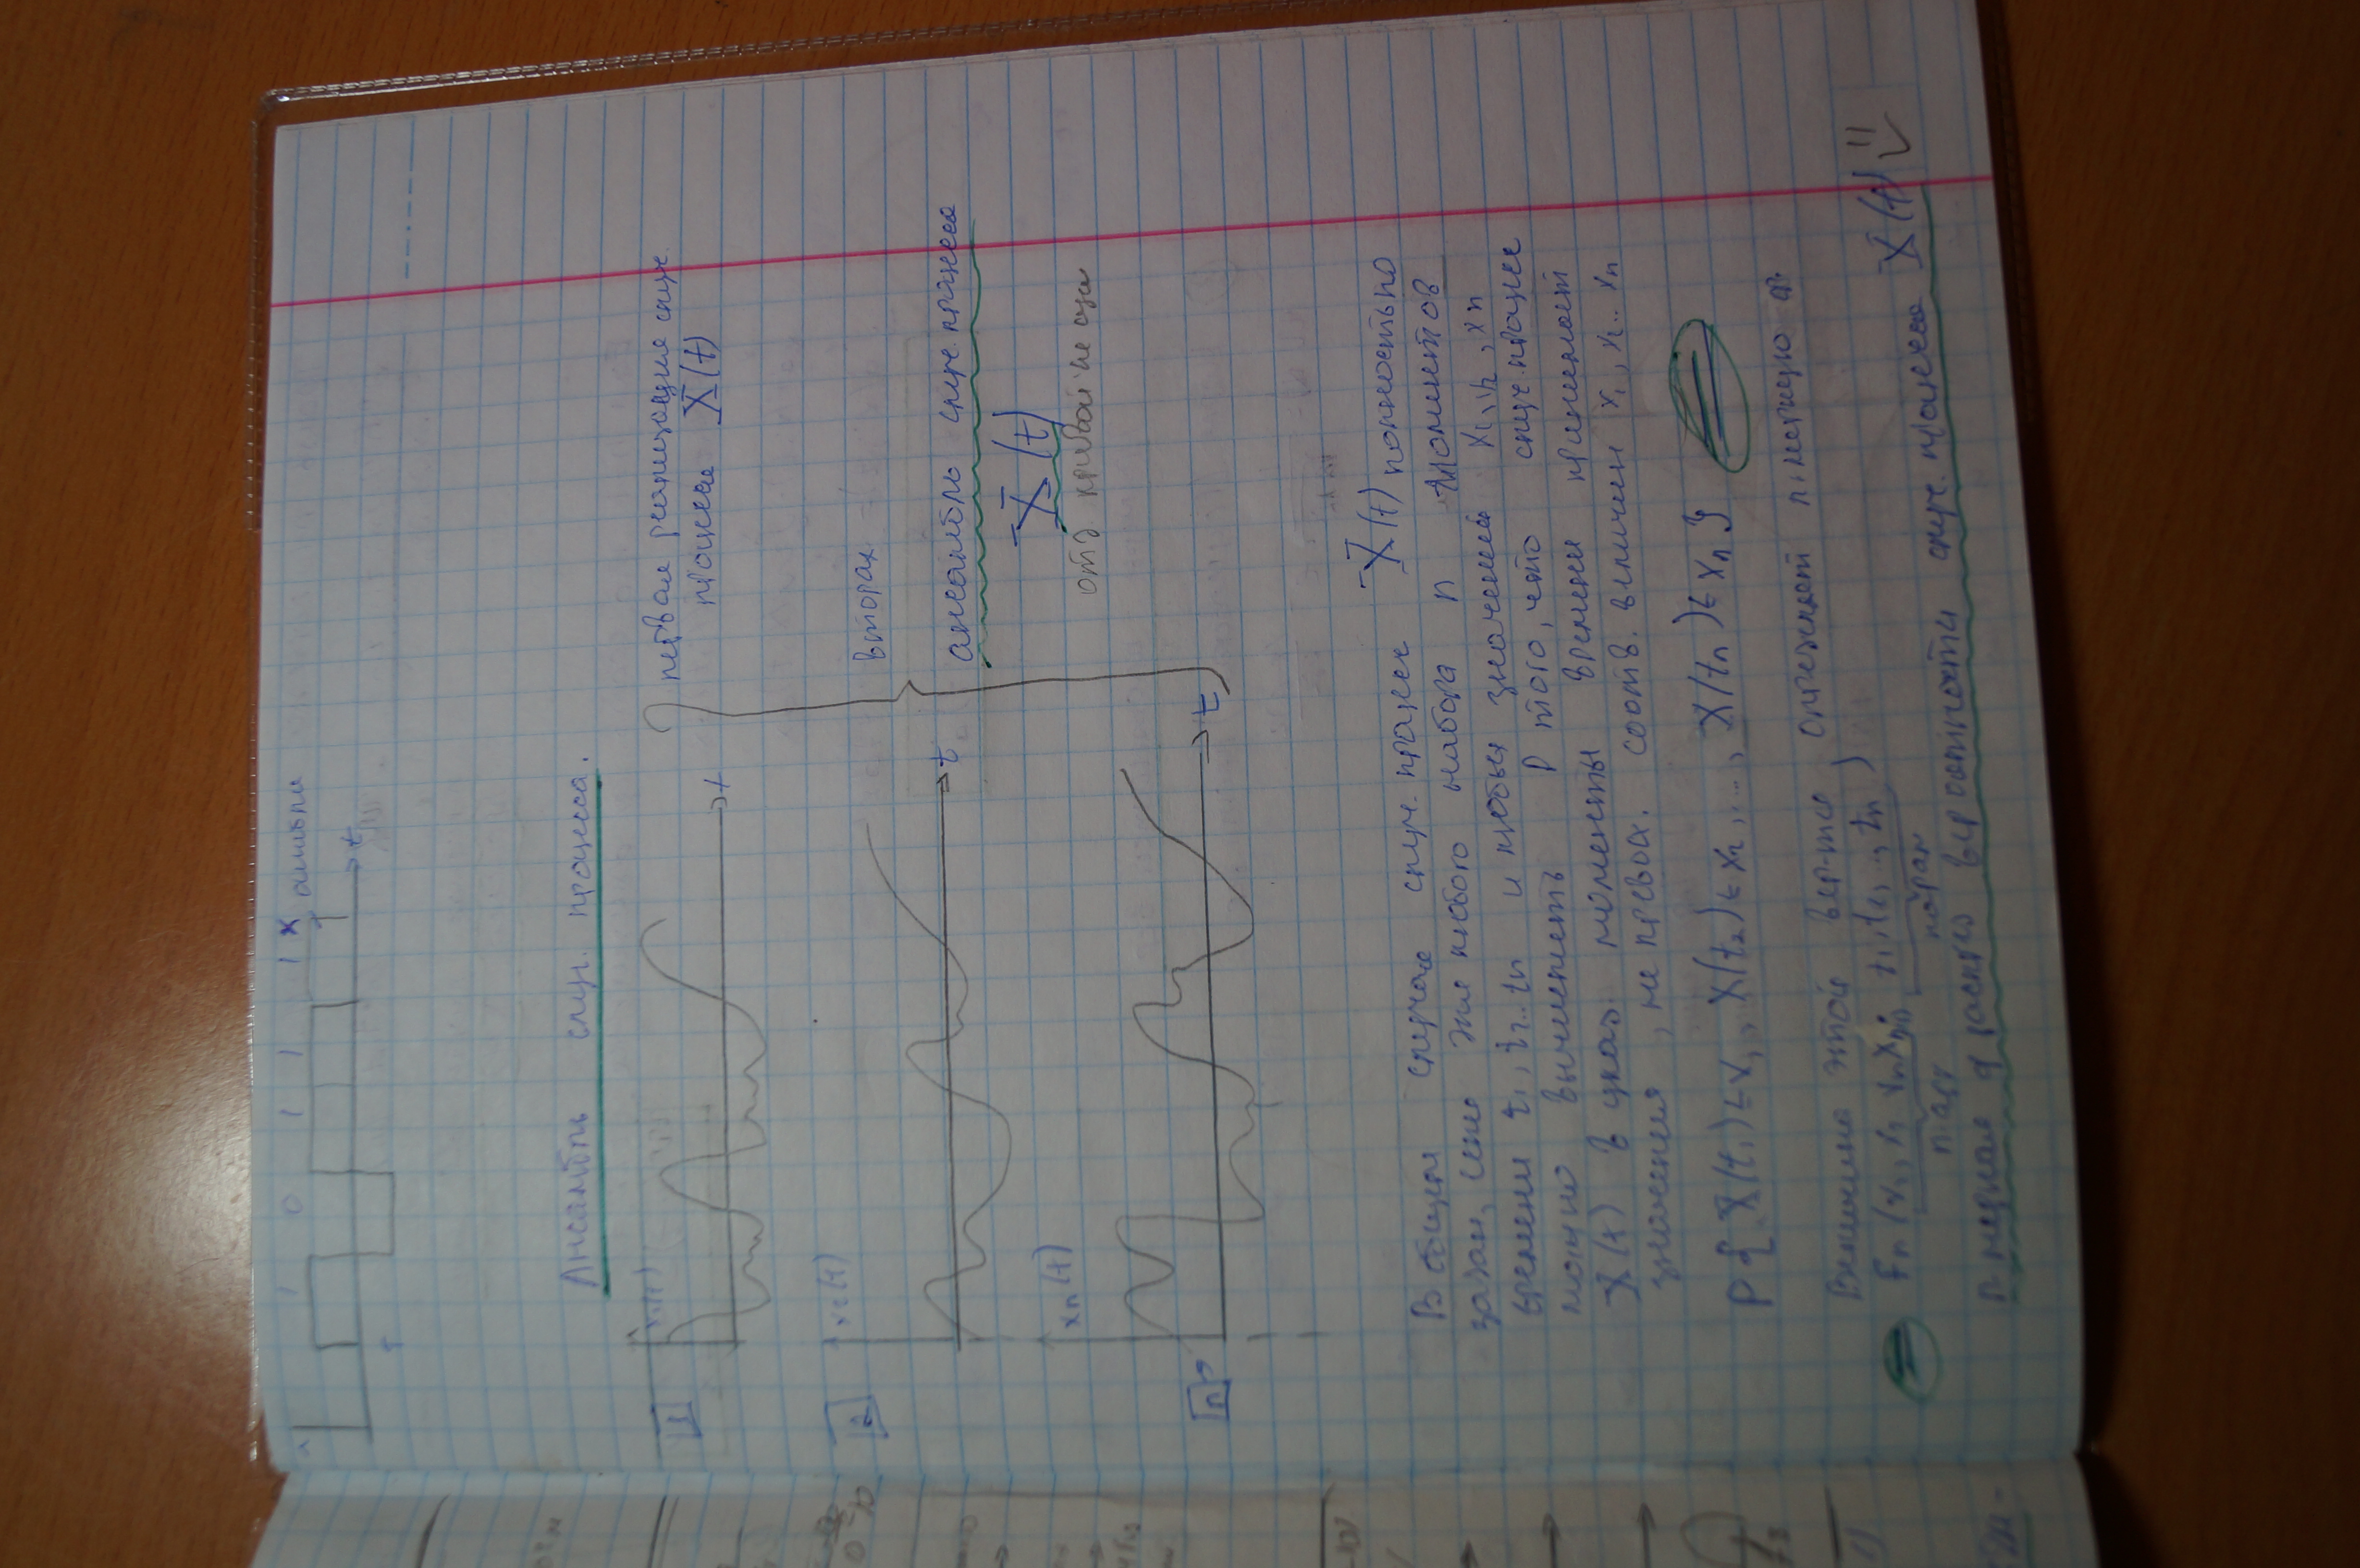 1 0 1 1 1 x ошибка
t
Ансамбль случ. процесса.
1
t
первая реализация случ.
процесса X(t)
2 x2(t)
t
вторая
ансамбль случ. процесса
X(t)
xn(t)
отд кривой не
n
t
В общем случае случ. процесс X(t) полностью
задан, если для любого набора n моментов
времени t1, t2.. tn и любых значений x1, x2, xn
можно вычислить P того, что случ. процесс
X(t) в указ. моменты времени принимает
значения, не превос. соотв. величин x1, x2.. xn
P{X(t1)≤x1, X(t2)≤x2, ..., X(tn)≤xn}
Величина этой вер-ти определяет n-мерную ф.
Fn (x1, x2 xn; t1, t2, .., tn)
n арг парам
n мерная ф распред вероятности случ. процесса X(t)